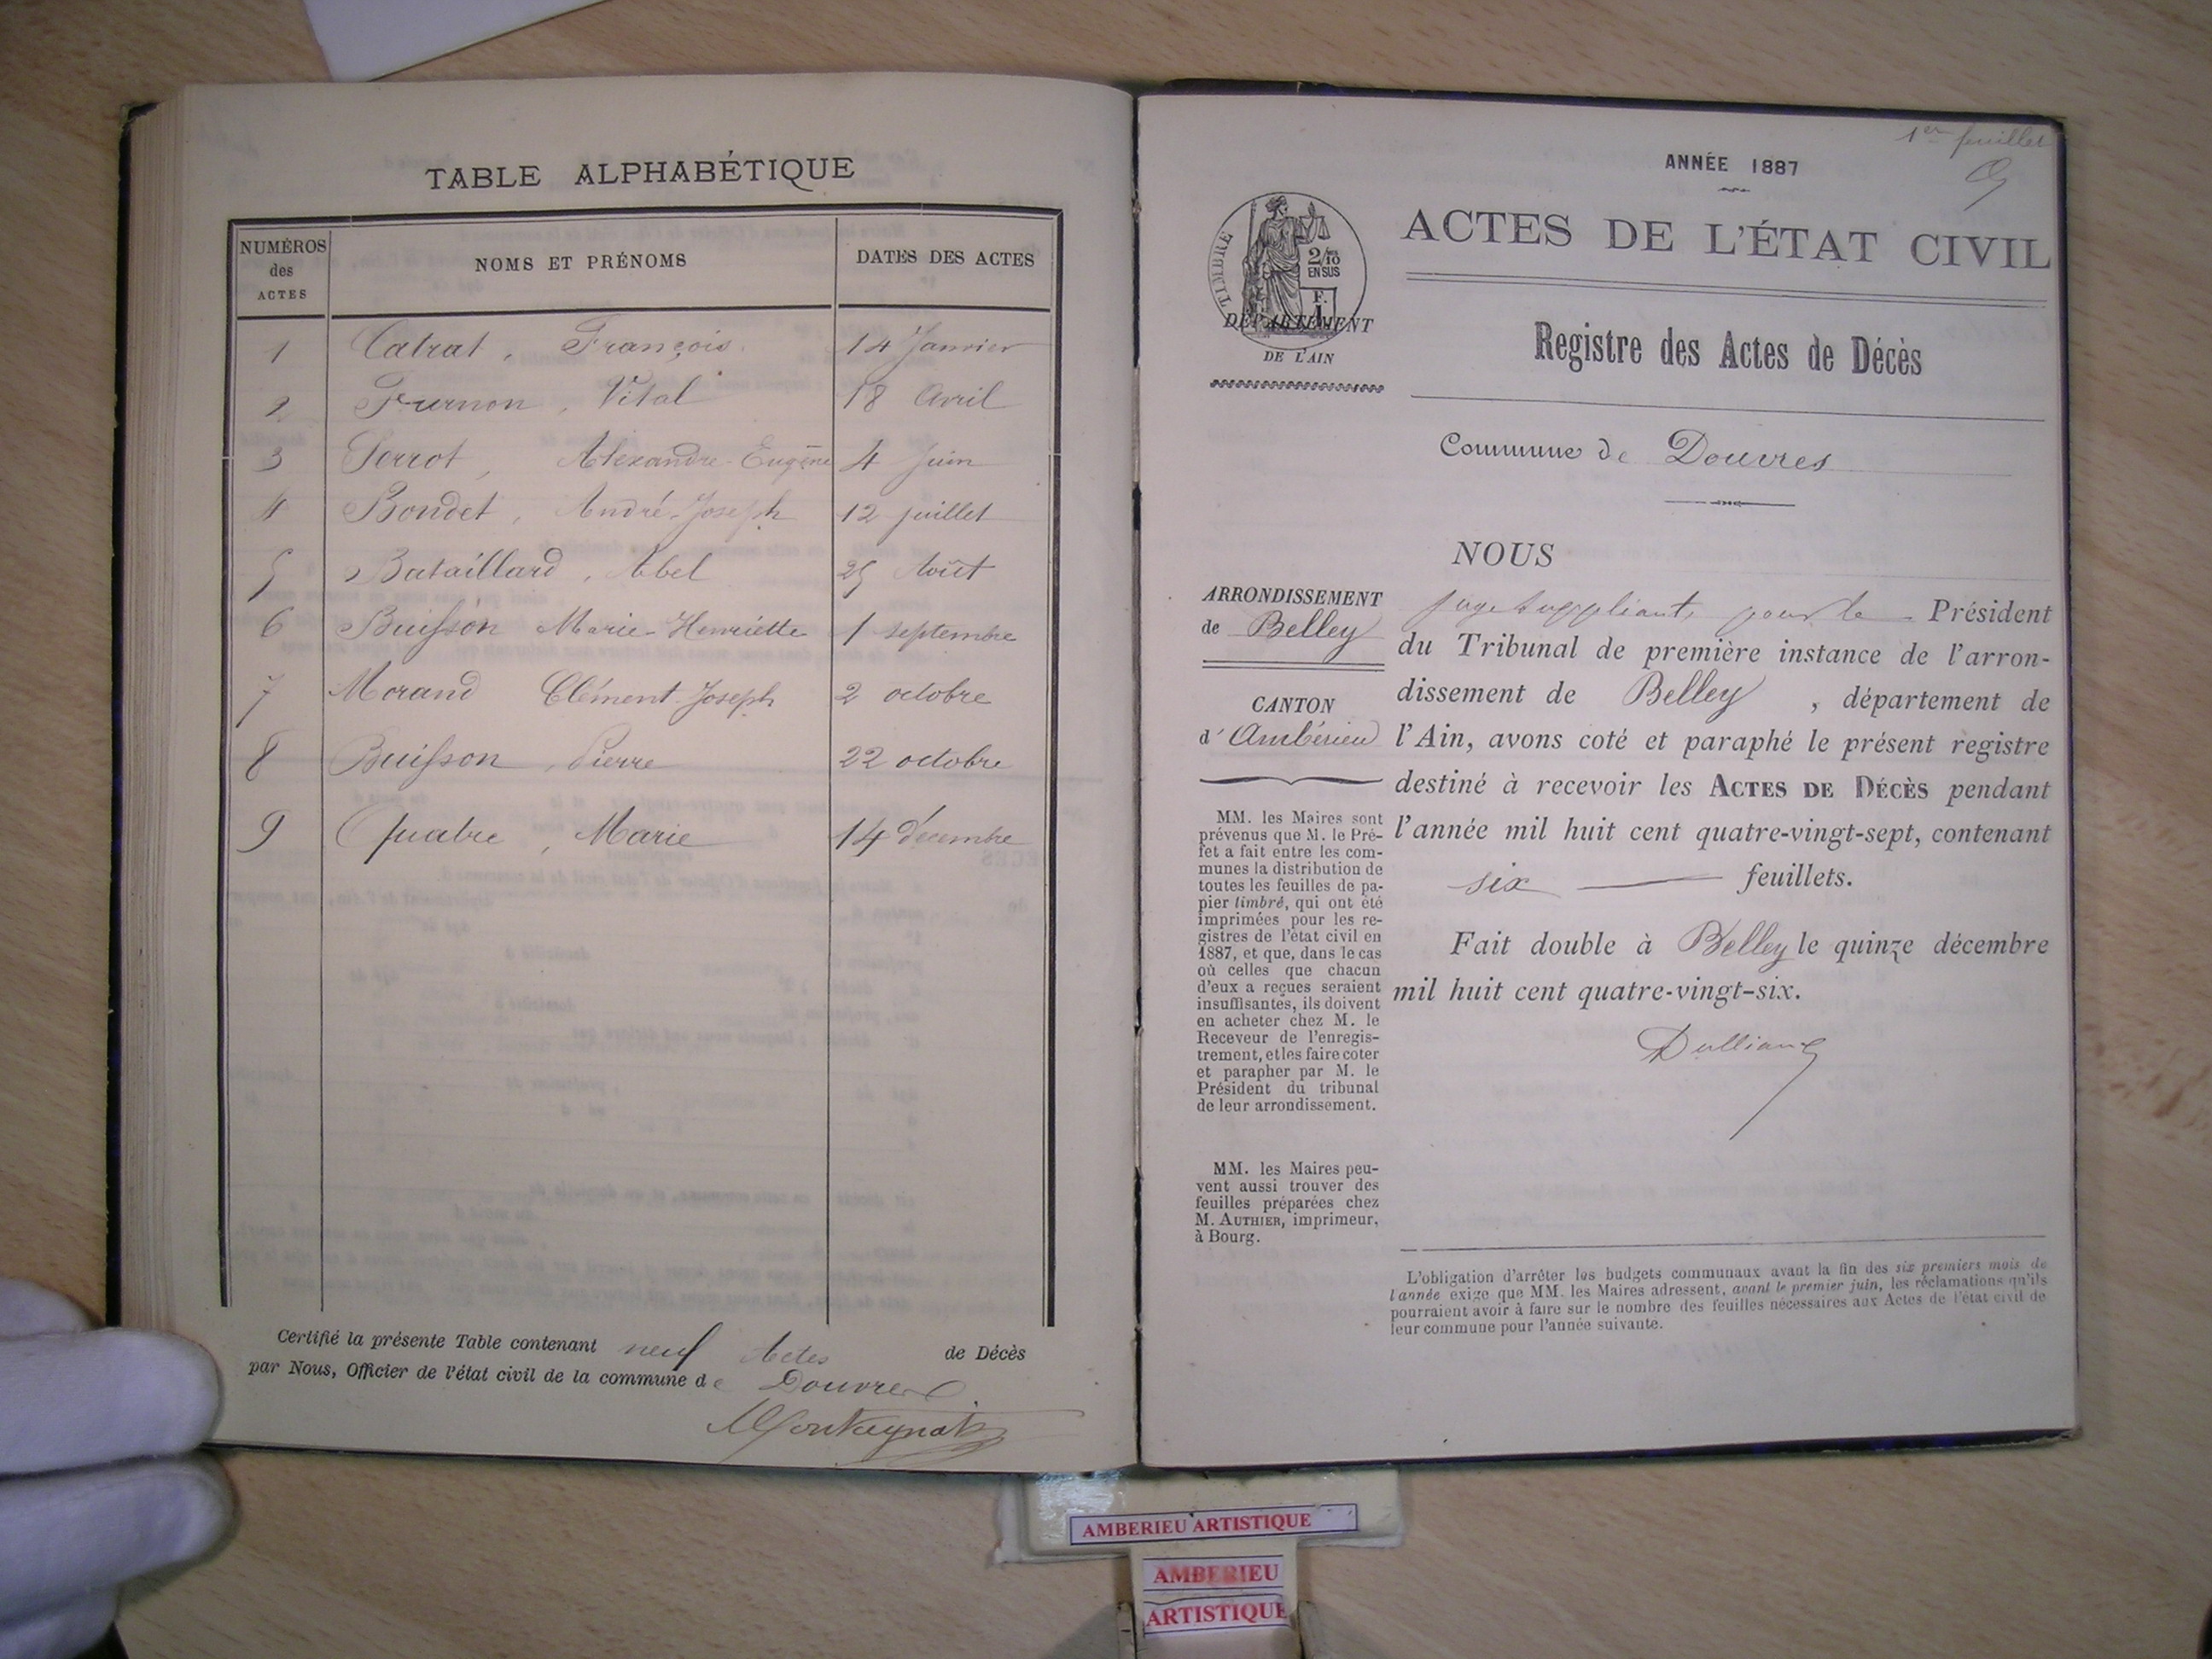 TABLE ALPHABÉTIQUE
NUMÉROS des ACTES NOMS ET PRÉNOMS DATES DES ACTES
1 Catrat, François 14 Janvier
2 Furnon, Vital 18 Avril
3 Perrot, Alexandre-Eugène 4 Juin
4 Bondet, André-Joseph 12 juillet
5 Bataillard, Abel 25 Août
6 Buisson Marie-Henriette 1 septembre
7 Morand Clément-Joseph 2 octobre
8 Buisson, Pierre 22 octobre
9 Quatre, Marie 14 décembre
Certifié la présente Table contenant neuf Actes de Décès
par Nous, Officier de l'état civil de la commune de Douvres
1er feuillet
ANNÉE 1887
ACTES DE L'ÉTAT CIVIL
TIMBRE
2/10
EN SUS
F.
1
DÉPARTEMENT
DE L'AIN
Registre des Actes de Décès
Commune de Douvres
ARRONDISSEMENT
de Belley
CANTON
d'Ambérieu
MM. les Maires sont
prévenus que M. le Pré-
fet a fait entre les com-
munes la distribution de
toutes les feuilles de pa-
pier timbré, qui ont été
imprimées pour les re-
gistres de l'état civil en
1887, et que, dans le cas
où celles que chacun
d'eux a reçues seraient
insuffisantes, ils doivent
en acheter chez M. le
Receveur de l'enregis-
trement, et les faire coter
et parapher par M. le
Président du tribunal
de leur arrondissement.
MM. les Maires peu-
vent aussi trouver des
feuilles préparées chez
M. AUTHIER, imprimeur,
à Bourg.
NOUS
juge suppléant, pour le Président
du Tribunal de première instance de l'arron-
dissement de Belley, département de
l'Ain, avons coté et paraphé le présent registre
destiné à recevoir les ACTES DE DÉCÈS pendant
l'année mil huit cent quatre-vingt-sept, contenant
six feuillets.
Fait double à Belley le quinze décembre
mil huit cent quatre-vingt-six.
L'obligation d'arrêter les budgets communaux avant la fin des six premiers mois de
l'année exige que MM. les Maires adressent, avant le premier juin, les réclamations qu'ils
pourraient avoir à faire sur le nombre des feuilles nécessaires aux Actes de l'état civil de
leur commune pour l'année suivante.
AMBERIEU ARTISTIQUE
AMBERIEU
ARTISTIQUE